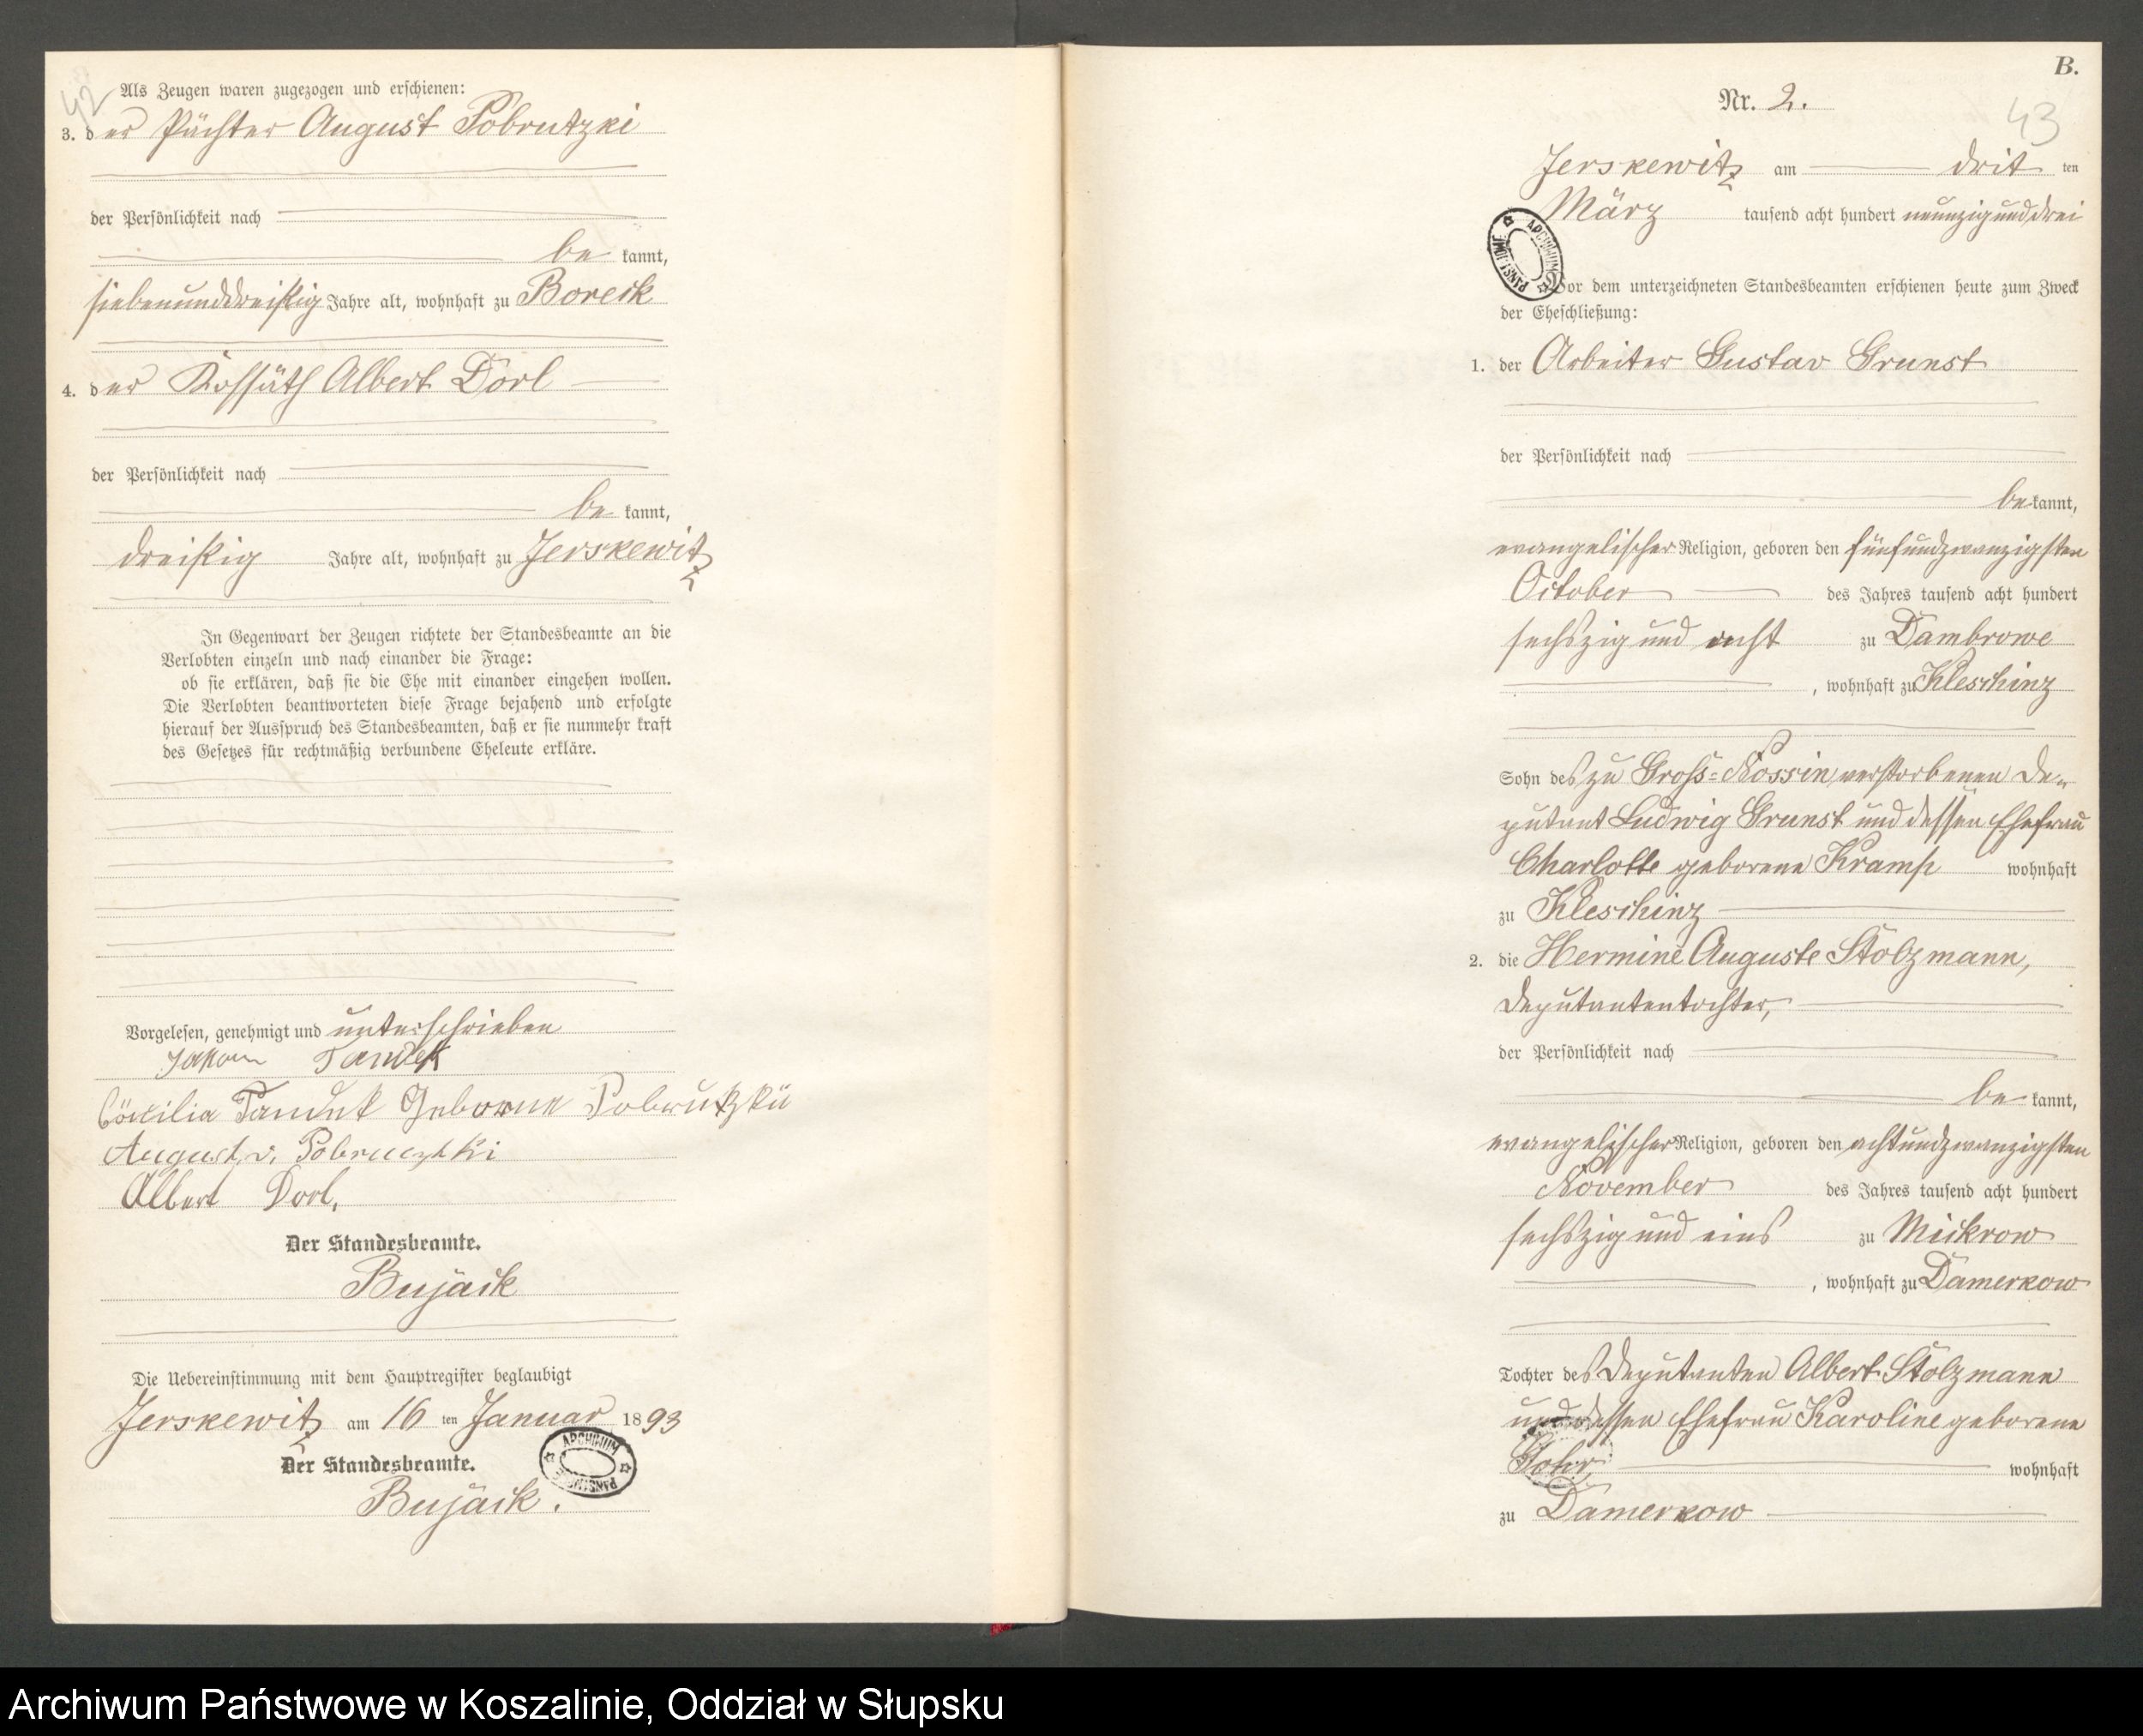 42
Als Zeugen waren zugezogen und erschienen:
3. der Pächter August Pobrutzki
der Persönlichkeit nach
be kannt,
siebenunddreißig Jahre alt, wohnhaft zu Boreck
4. der Kossäth Albert Dorl
der Persönlichkeit nach
be kannt,
dreißig Jahre alt, wohnhaft zu Jerskewitz
In Gegenwart der Zeugen richtete der Standesbeamte an die
Verlobten einzeln und nach einander die Frage:
ob sie erklären, daß sie die Ehe mit einander eingehen wollen.
Die Verlobten beantworteten diese Frage bejahend und erfolgte
hierauf der Ausspruch des Standesbeamten, daß er sie nunmehr kraft
des Gesetzes für rechtmäßig verbundene Eheleute erkläre.
Vorgelesen, genehmigt und unterschrieben
Tandek
Cöcilia Tandek Geborne Pobrutzki
August v. Pobrutzki
Albert Dorl.
Der Standesbeamte.
Bujack
Die Uebereinstimmung mit dem Hauptregister beglaubigt
Jerskewitz am 16 ten Januar 1893
Der Standesbeamte.
Bujack.
B.
Nr. 2.
43
Jerskewitz am drit ten
März tausend acht hundert neunzig und drei
Vor dem unterzeichneten Standesbeamten erschienen heute zum Zweck
der Eheschließung:
1. der Arbeiter Gustav Grunst
der Persönlichkeit nach
be kannt,
evangelischer Religion, geboren den fünfundzwanzigsten
October des Jahres tausend acht hundert
sechszig und acht zu Dambrowe
, wohnhaft zu Kleschinz
Sohn des zu Groß=Nossin verstorbenen De-
putant Ludwig Grunst und dessen Ehefrau
Charlotte geborene Kramp wohnhaft
zu Kleschinz
2. die Hermine Auguste Stolzmann,
Deputantentochter,
der Persönlichkeit nach
be kannt,
evangelischer Religion, geboren den achtundzwanzigsten
November des Jahres tausend acht hundert
sechszig und eins zu Mickrow
, wohnhaft zu Damerkow
Tochter des Deputanten Albert Stolzmann
und dessen Ehefrau Karoline geborene
wohnhaft
zu Damerkow
Archiwum Państwowe w Koszalinie, Oddział w Słupsku